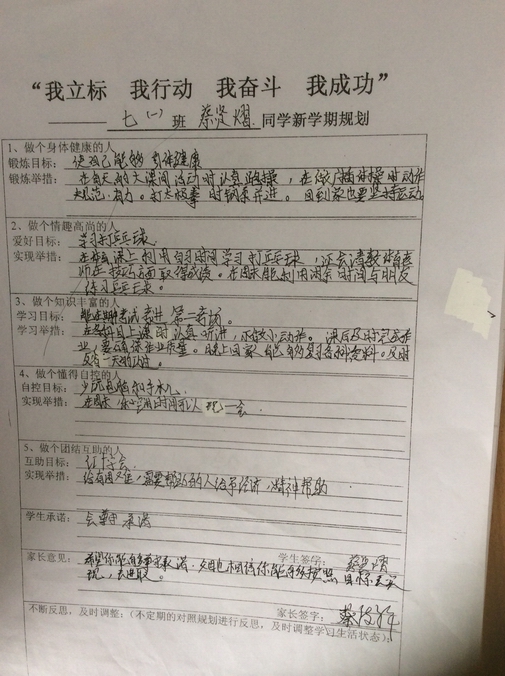 “我立标　我行动　我奋斗　我成功”
七（一）班 蔡 熠 同学新学期规划
1、做个身体健康的人
锻炼目标：使自己能够身体健康
锻炼举措：在每天的大课间活动时认真跑操，在做广播体操时动作
规范，有力。打太极拳时刚柔并进。回到家也要坚持运动
2、做个情趣高尚的人
爱好目标：学习打乒乓球
实现举措：在 课上利用自习时间学习打乒乓球，还会请教体育老
师在技巧方面取得成绩。在周末能利用闲余时间与朋友
练习乒乓球。
3、做个知识丰富的人
学习目标：能在期 考试考进第一考场。
学习举措：在各科目上课时认真听讲，不做小动作。课后及时完成作
业，要确保作业质量。晚上回家自己 复习各科资料。及时
反 一天的功课。
4、做个懂得自控的人
自控目标：少玩电脑和手机
实现举措：在周末 时间可以玩一会
5、做个团结互助的人
互助目标：红十字会
实现举措：给有困难，需要帮助的人给予经济，精神帮助
学生承诺：会遵守承诺
学生签字：蔡 熠
家长意见：希望你能 承诺，父母也相信你能 按照目标去实
现，去进取。
家长签字：蔡
不断反思，及时调整：（不定期的对照规划进行反思，及时调整学习生活状态）：